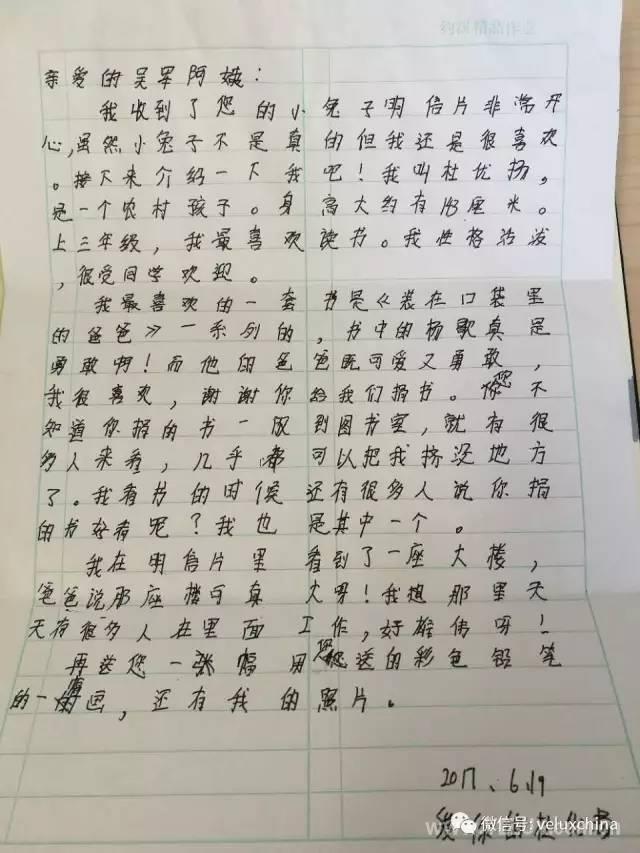 亲爱的吴军阿姨：
我收到了您的小兔子明信片非常开
心，虽然小兔子不是真的但我还是很喜欢
。接下来介绍一下我吧！我叫杜优扬，
是一个农村孩子。身高大约有 厘米。
上三年级，我最喜欢读书。我性格活泼
，很受同学欢迎。
我最喜欢的一套书是《装在口袋里
的爸爸》一系列的，书中的杨歌真是
勇敢啊！而他的爸爸既可爱又勇敢，
我很喜欢，谢谢你给我们捐书。您不
知道你捐的书一放到图书室，就有很
多人来看，几乎都可以把我挤没地方
了。我看书的时候还有很多人说你捐
的书好看呢？我也是其中一个。
我在明信片里看到了一座大楼，
爸爸说那座楼可真大呀！我想那里天
天有很多人在里面工作，好雄伟呀！
再送您一张幅用您送的彩色铅笔
的一画，还有我的照片。
2017、6.19
爱你的杜优扬
微信号: veluxchina